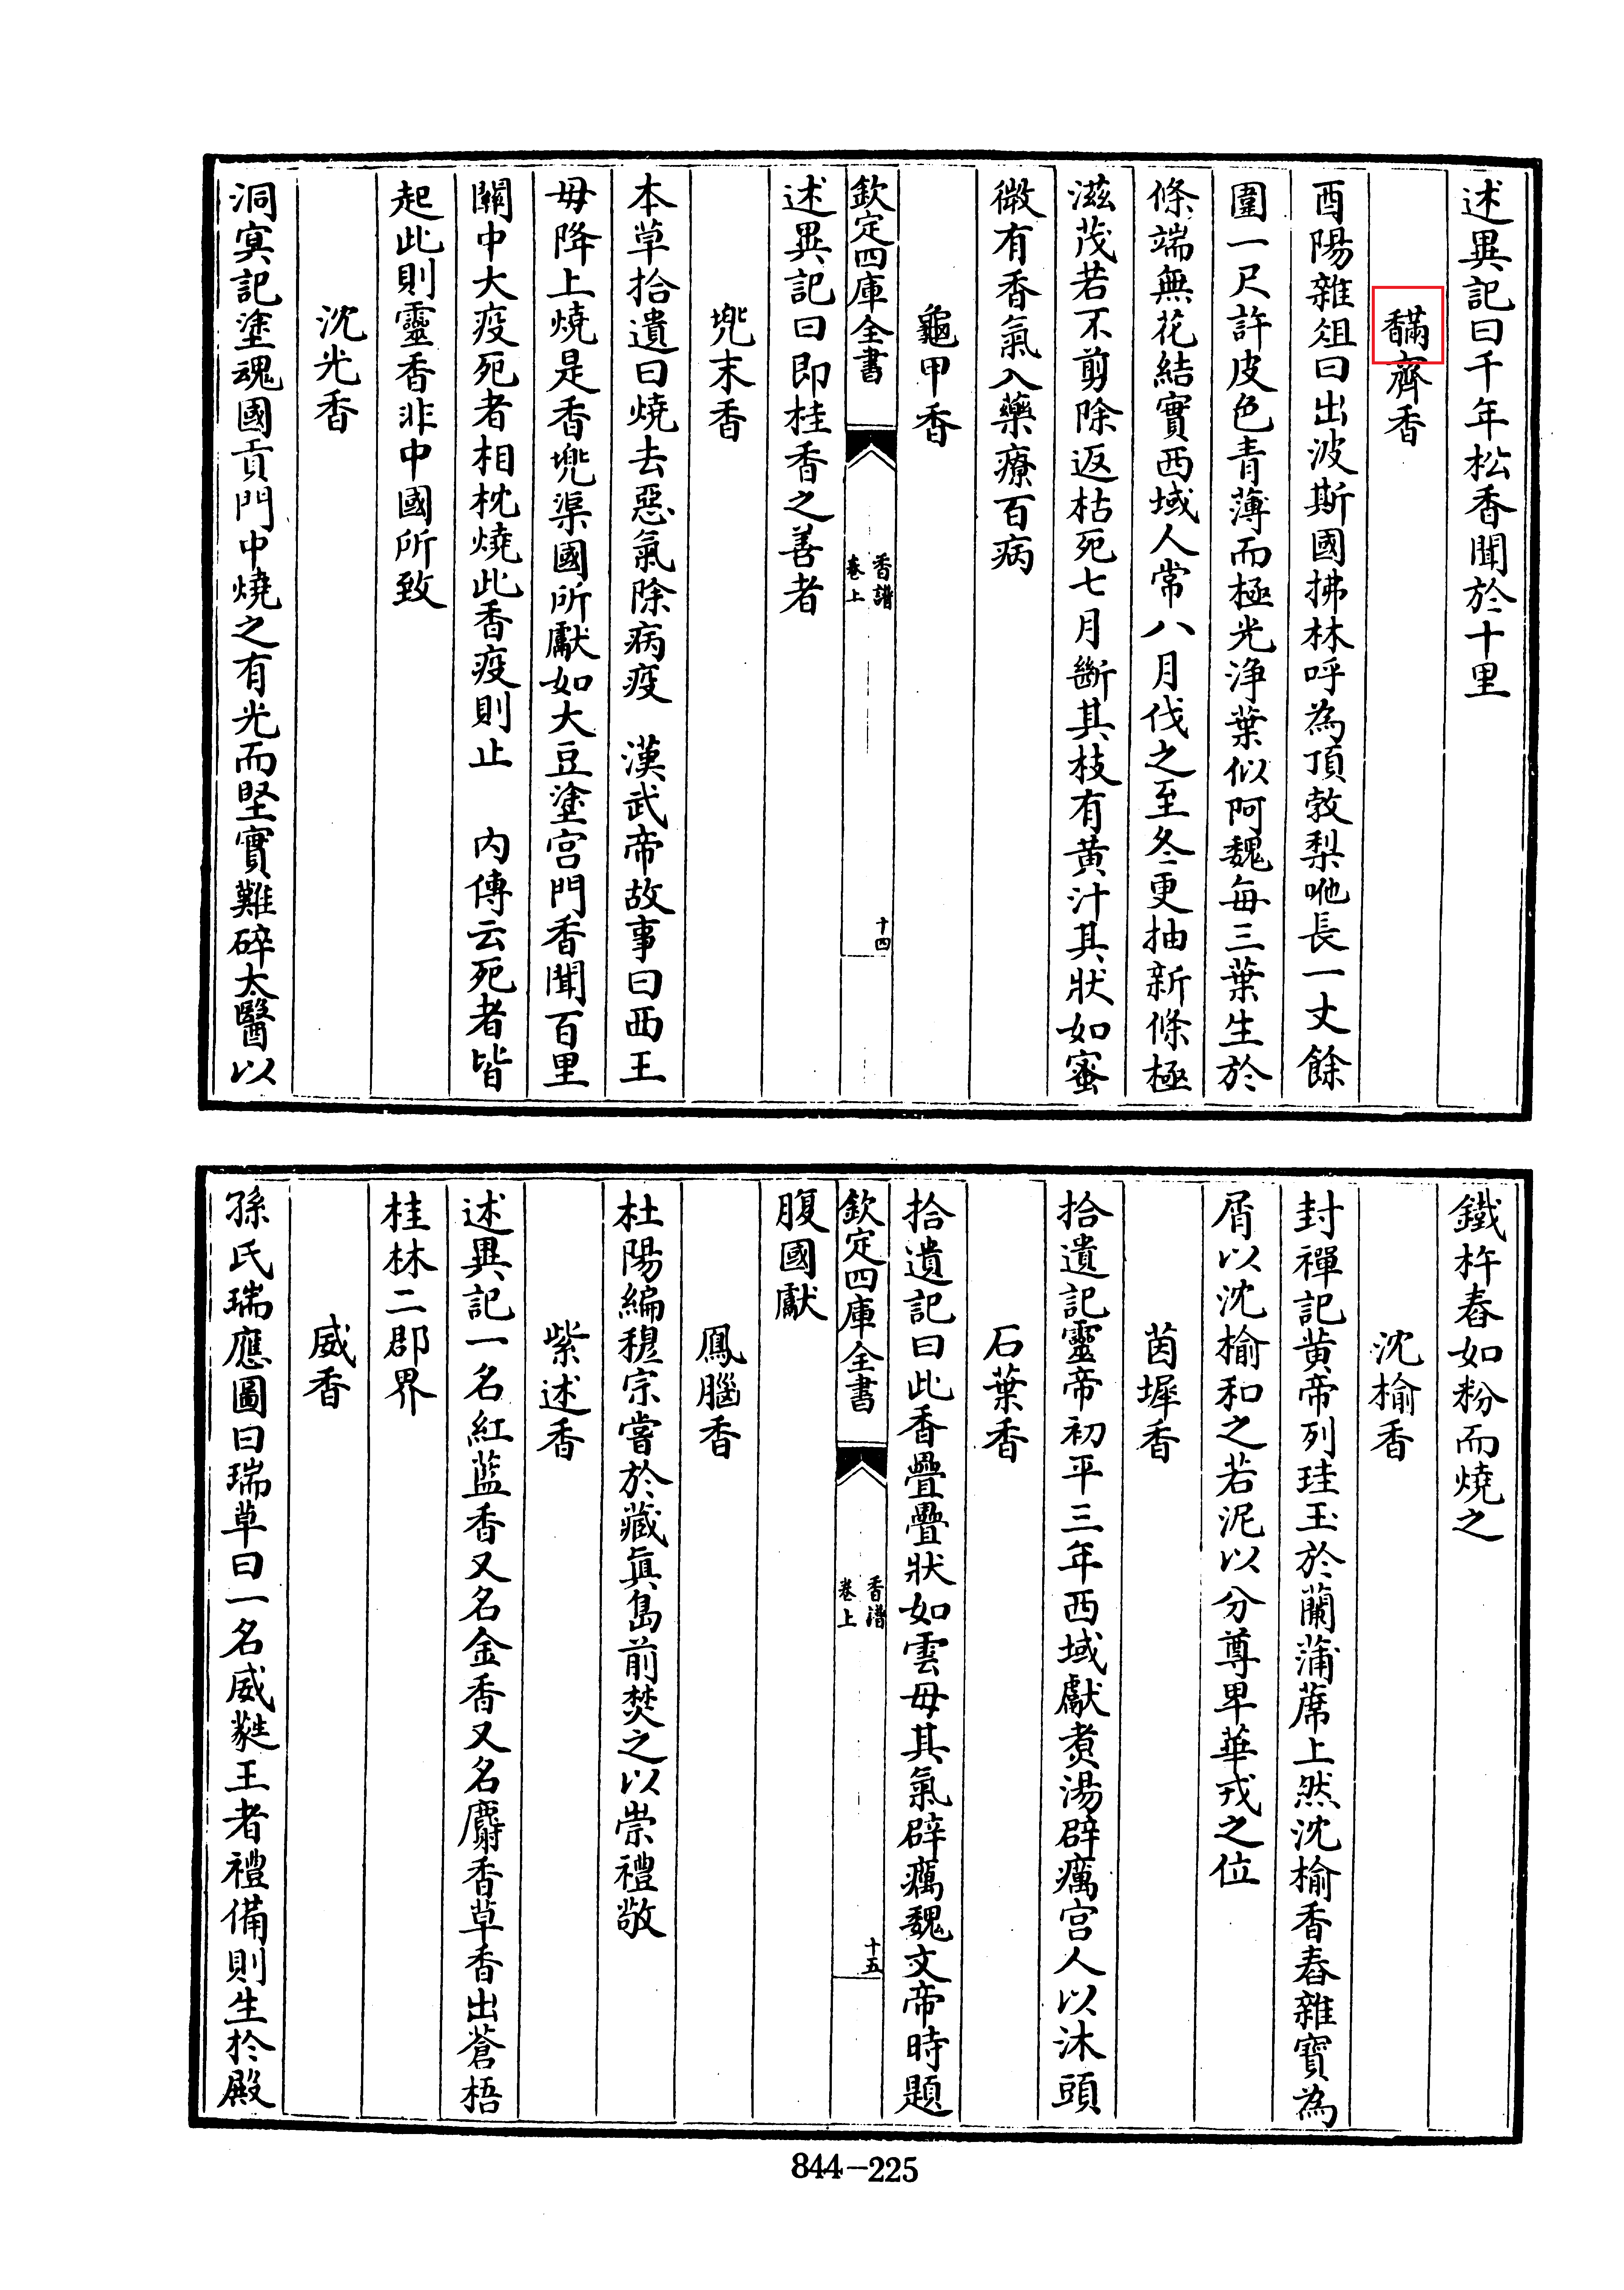 述異記曰千年松香聞於十里
⿰香㒼齊香
酉陽雜俎曰出波斯國拂林呼為頂敦梨咃長一丈餘
圍一尺許皮色青薄而極光淨葉似阿魏每三葉生於
條端無花結實西域人常八月伐之至冬更抽新條極
滋茂若不剪除返枯死七月斷其枝有黄汁其狀如蜜
微有香氣入藥療百病
龜甲香
欽定四庫全書
香譜
卷上
十四
述異記曰即桂香之善者
兠末香
本草拾遺曰燒去惡氣除病疫 漢武帝故事曰西王
母降上燒是香兠渠國所獻如大豆塗宫門香聞百里
關中大疫死者相枕燒此香疫則止 内傳云死者皆
起此則靈香非中國所致
沈光香
洞冥記塗魂國貢門中燒之有光而堅實難碎太醫以
鐵杵舂如粉而燒之
沈榆香
封禪記黄帝列珪玉於蘭蒲蓆上然沈榆香舂雜寶為
屑以沈榆和之若泥以分尊卑華戎之位
茵墀香
拾遺記靈帝初平三年西域獻煑湯辟癘宫人以沐頭
石葉香
拾遺記曰此香疊疊狀如雲母其氣辟癘魏文帝時題
欽定四庫全書
香譜
卷上
十五
腹國獻
鳳腦香
杜陽編穆宗嘗於藏真島前焚之以崇禮敬
紫述香
述異記一名紅藍香又名金香又名麝香草香出蒼梧
桂林二郡界
威香
孫氏瑞應圖曰瑞草曰一名威蕤王者禮備則生於殿
844-225